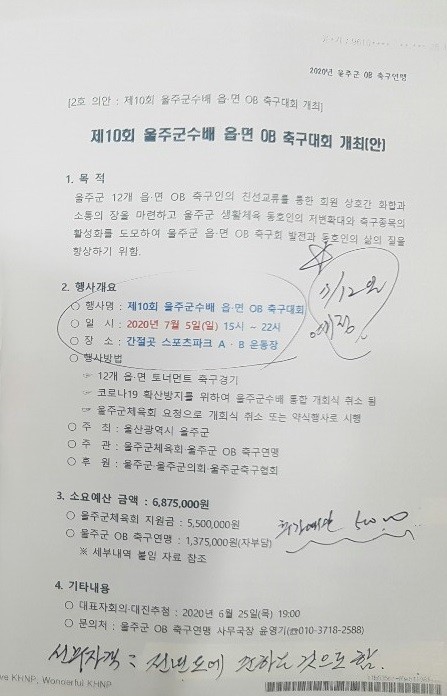 2020년 울주군 OB 축구연맹
[2호 의안 : 제10회 울주군수배 읍·면 OB 축구대회 개최]
제10회 울주군수배 읍·면 OB 축구대회 개최(안)
1. 목 적
울주군 12개 읍·면 OB 축구인의 친선교류를 통한 회원 상호간 화합과
소통의 장을 마련하고 울주군 생활체육 동호인의 저변확대와 축구종목의
활성화를 도모하여 울주군 읍·면 OB 축구회 발전과 동호인의 삶의 질을
향상하기 위함.
7/12일
예정
2. 행사개요
○ 행사명 : 제10회 울주군수배 읍·면 OB 축구대회
○ 일 시 : 2020년 7월 5일(일) 15시 ~ 22시
○ 장 소 : 간절곳 스포츠파크 A·B 운동장
○ 행사방법
☞ 12개 읍·면 토너먼트 축구경기
☞ 코로나19 확산방지를 위하여 울주군수배 통합 개회식 취소 됨
☞ 울주군체육회 요청으로 개회식 취소 또는 약식행사로 시행
○ 주 최 : 울산광역시 울주군
○ 주 관 : 울주군체육회·울주군 OB 축구연맹
○ 후 원 : 울주군·울주군의회·울주군축구협회
3. 소요예산 금액 : 6,875,000원
○ 울주군체육회 지원금 : 5,500,000원
○ 울주군 OB 축구연맹 : 1,375,000원(자부담)
※ 세부내역 붙임 자료 참조
4. 기타내용
○ 대표자회의·대진추첨 : 2020년 6월 25일(목) 19:00
○ 문의처 : 울주군 OB 축구연맹 사무국장 윤영기(☎010-3718-2588)
선수자격 : 전년도에 준하는 것으로 함.
ve KHNP, Wonderful KHNP